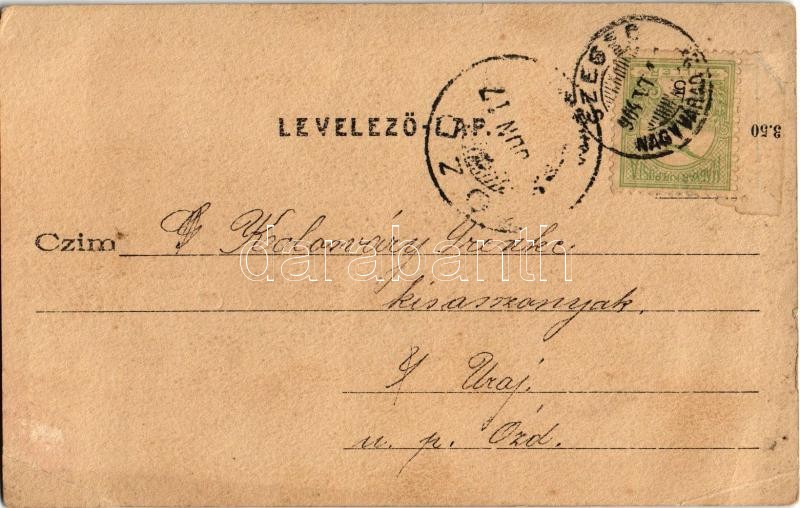 LEVELEZŐ-LAP.
SZEGED
NAGYVÁRAD
JUN 17
3.50
Czim Kolosváry Irenke
kisasszonyak.
Uraj.
u. p. Ózd.
darabanth